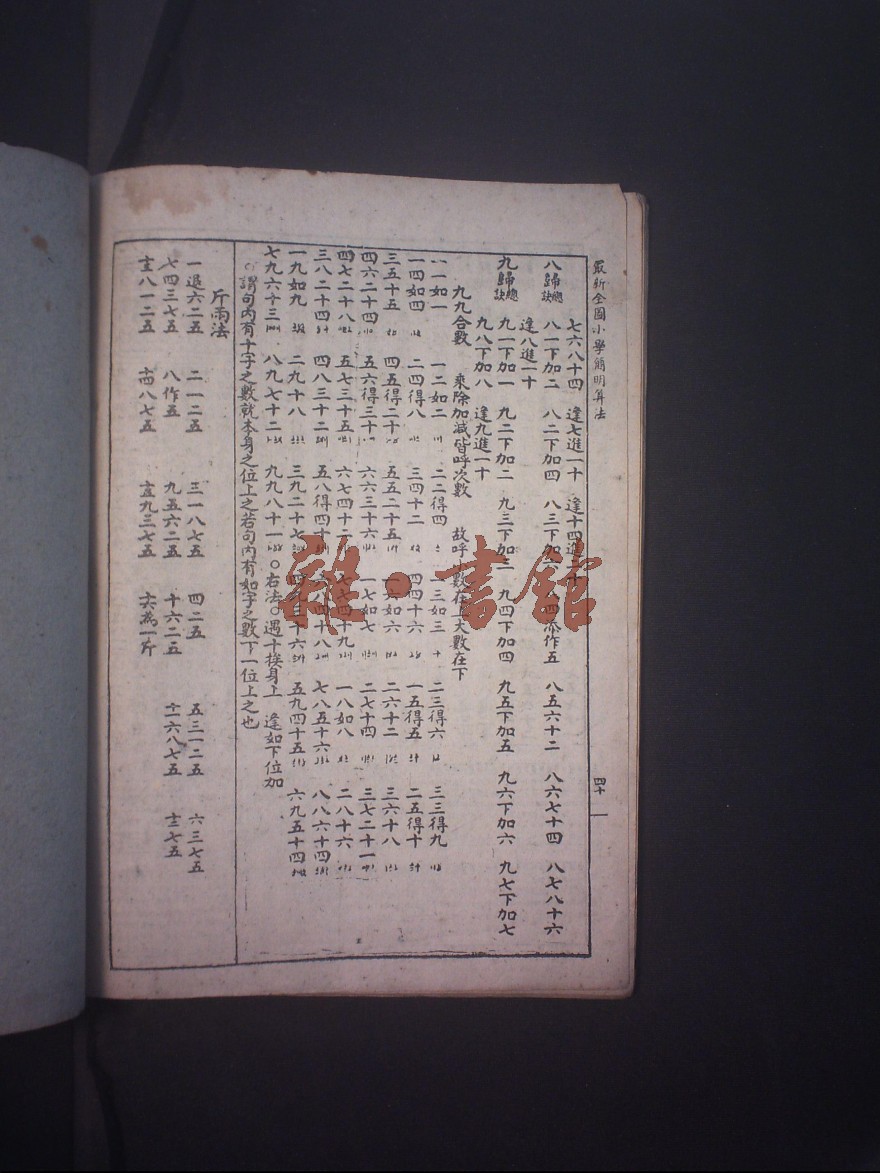 最新全圖小學簡明算法
四十一
七六八十四 逢七進一十 逢十四進二十
八歸總訣 八一下加二 八二下加四 八三下加六 八四添作五 八五六十二 八六七十四 八七八十六
逢八進一十
九歸總訣 九一下加一 九二下加二 九三下加三 九四下加四 九五下加五 九六下加六 九七下加七
九八下加八 逢九進一十
九九合數 乘除加減皆呼次數 故呼小數在上大數在下
一一如一 一二如二 二二得四 一三如三 二三得六 三三得九
一四如四 二四得八 三四十二 四四十六 一五得五 二五得十
三五十五 四五得二十 五五二十五 一六如六 二六十二 三六十八
四六二十四 五六得三十 六六三十六 一七如七 二七十四 三七二十一
四七二十八 五七三十五 六七四十二 七七四十九 一八如八 二八十六
三八二十四 四八三十二 五八得四十 六八四十八 七八五十六 八八六十四
一九如九 二九十八 三九二十七 四九三十六 五九四十五 六九五十四
七九六十三 八九七十二 九九八十一 ○右法○遇十挨身上 逢如下位加
○謂句內有十字之數就本身之位上之若句內有如字之數下一位上之也
斤兩法
一退六二五 二一二五 三一八七五 四二五 五三一二五 六三七五
七四三七五 八作五 九五六二五 十六二五 十一六八七五 十二七五
十三八一二五 十四八七五 十五九三七五 十六為一斤
雜·書館